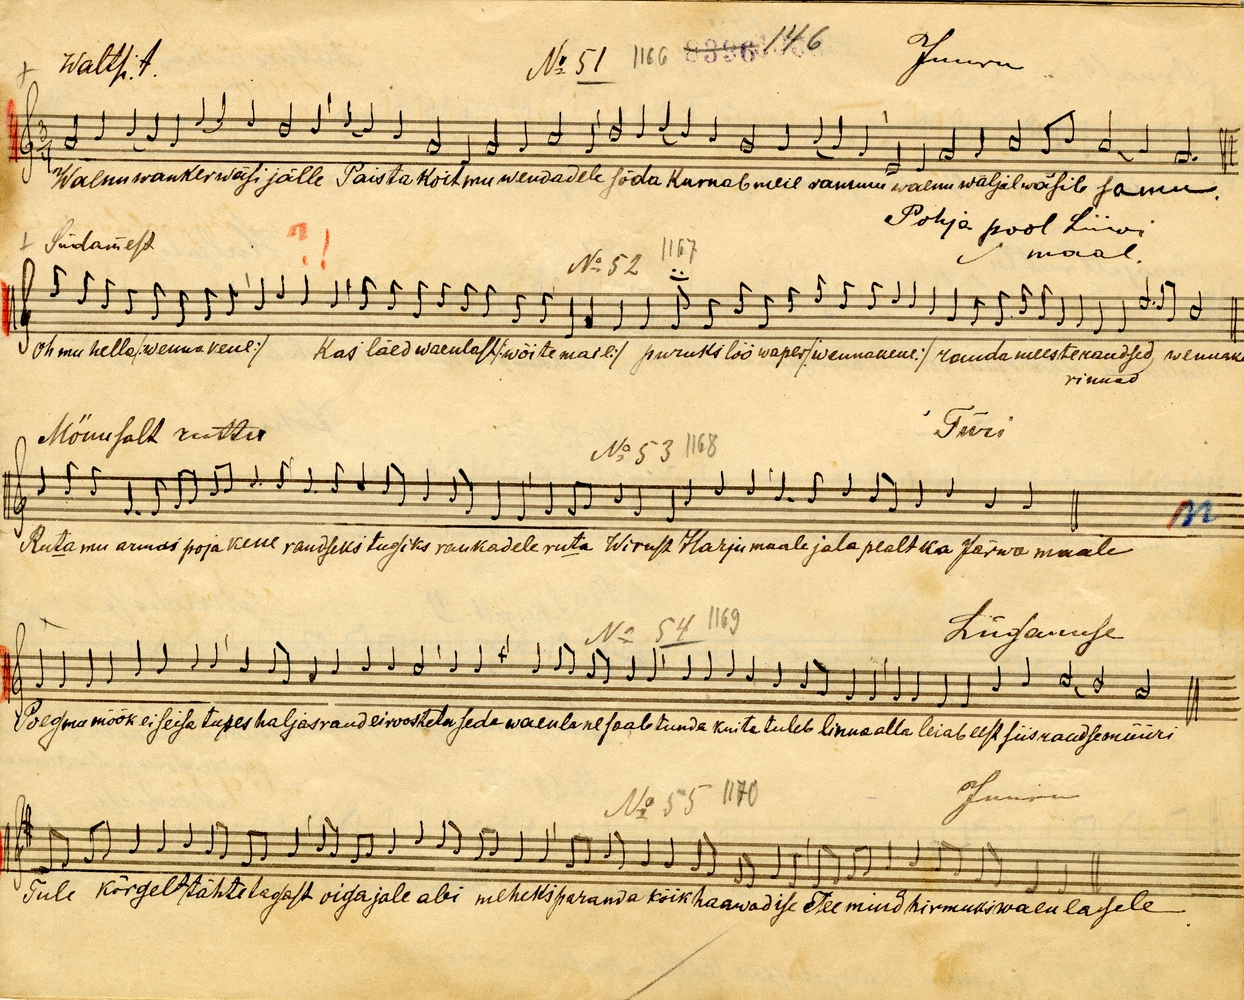 Waltsi. t. № 51 1166 8396 146 Juuru
Waenu wanker wäsi jälle Paista koit mu wendadele sõda kurnab meie rammu waenu wäljal wäsib samu.
Pohja pool Liiwi
maal.
Südamest ?! № 52 1167
oh mu hella /:wenna kene:/ Kas läed waenlast /:wõite maile:/ puruks löö waper /:wennakene:/ randa meeste raudsed wennake
rinnad
Mõnusalt ruttu № 53 1168 Türi
Ruta mu armas poja kene raudseks tugiks raukadele ruta Wirust Harju maale jala pealt ka Järwa maale
№ 54 1169 Lüganuse
Poeg mu mõõk ei seisa tupes haljas raud ei roosteta seda waenlane saab tunda kuita tuleb linna alla leiab eest siis raudse müüri
№ 55 1170 Juuru
Tule kõrgelt tähte tagast oiga jale abi meheks paranda kõik haawad ise Tee mind hirmuks waenlasele